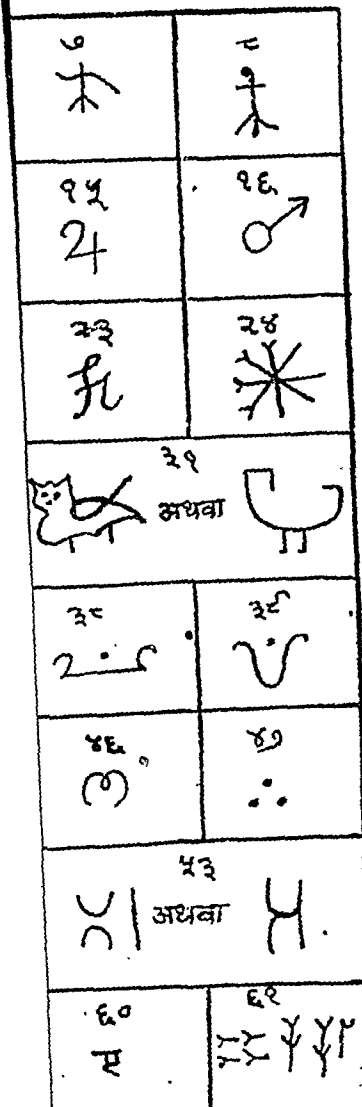 ७ ८
१५ १६
२३ २४
३१
अथवा
३८ ३९
४६ ४७
५३
अथवा
६० ६१